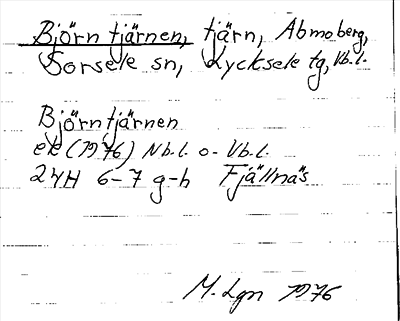 Björntjärnen, tjärn, Abmoberg,
Sorsele sn, Lycksele tg, Vb.l.
Björntjärnen
ek (1976) Nb.l. o. Vb.l.
24H 6-7 g-h Fjällnäs
M. Lgn 1976